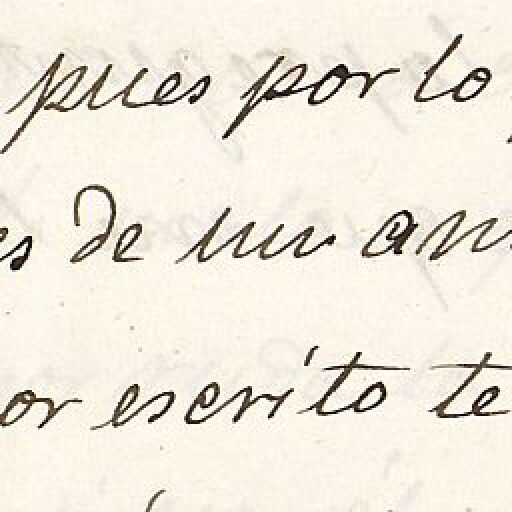 pues por lo
es de un am
or escrito te